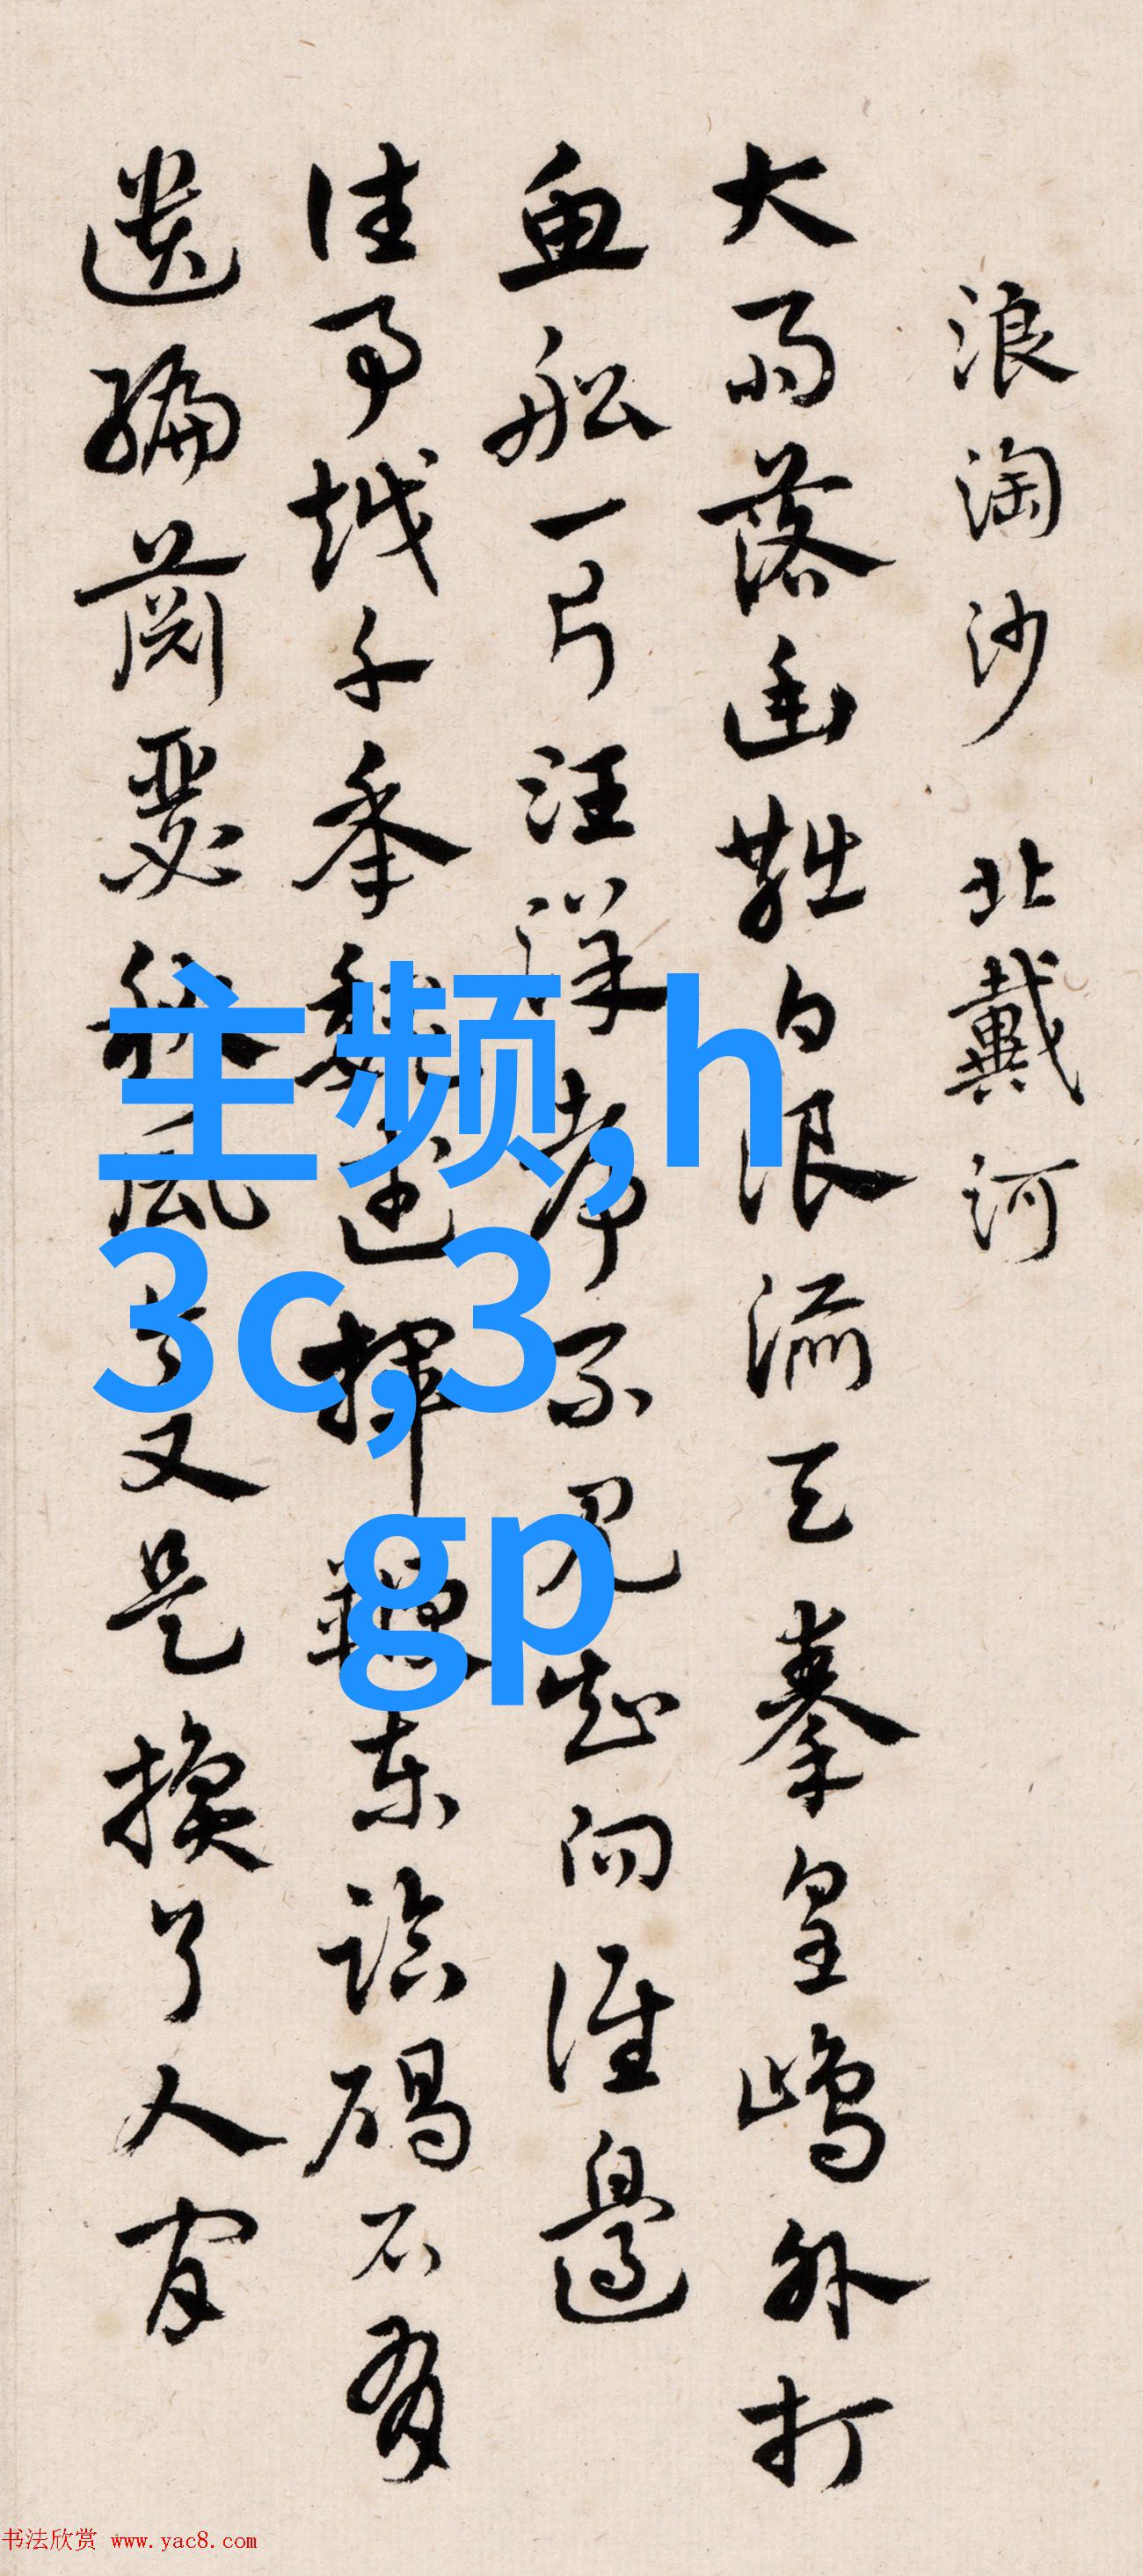 浪淘沙 北戴河
大雨落幽燕白浪滔天秦皇島外打
魚船一片汪洋都不見知向誰邊
往事越千年魏武揮鞭東臨碣石有
遺編蕭瑟秋風今又是換了人間
主频,h
3c,3
gp
书法欣赏 www.yac8.com